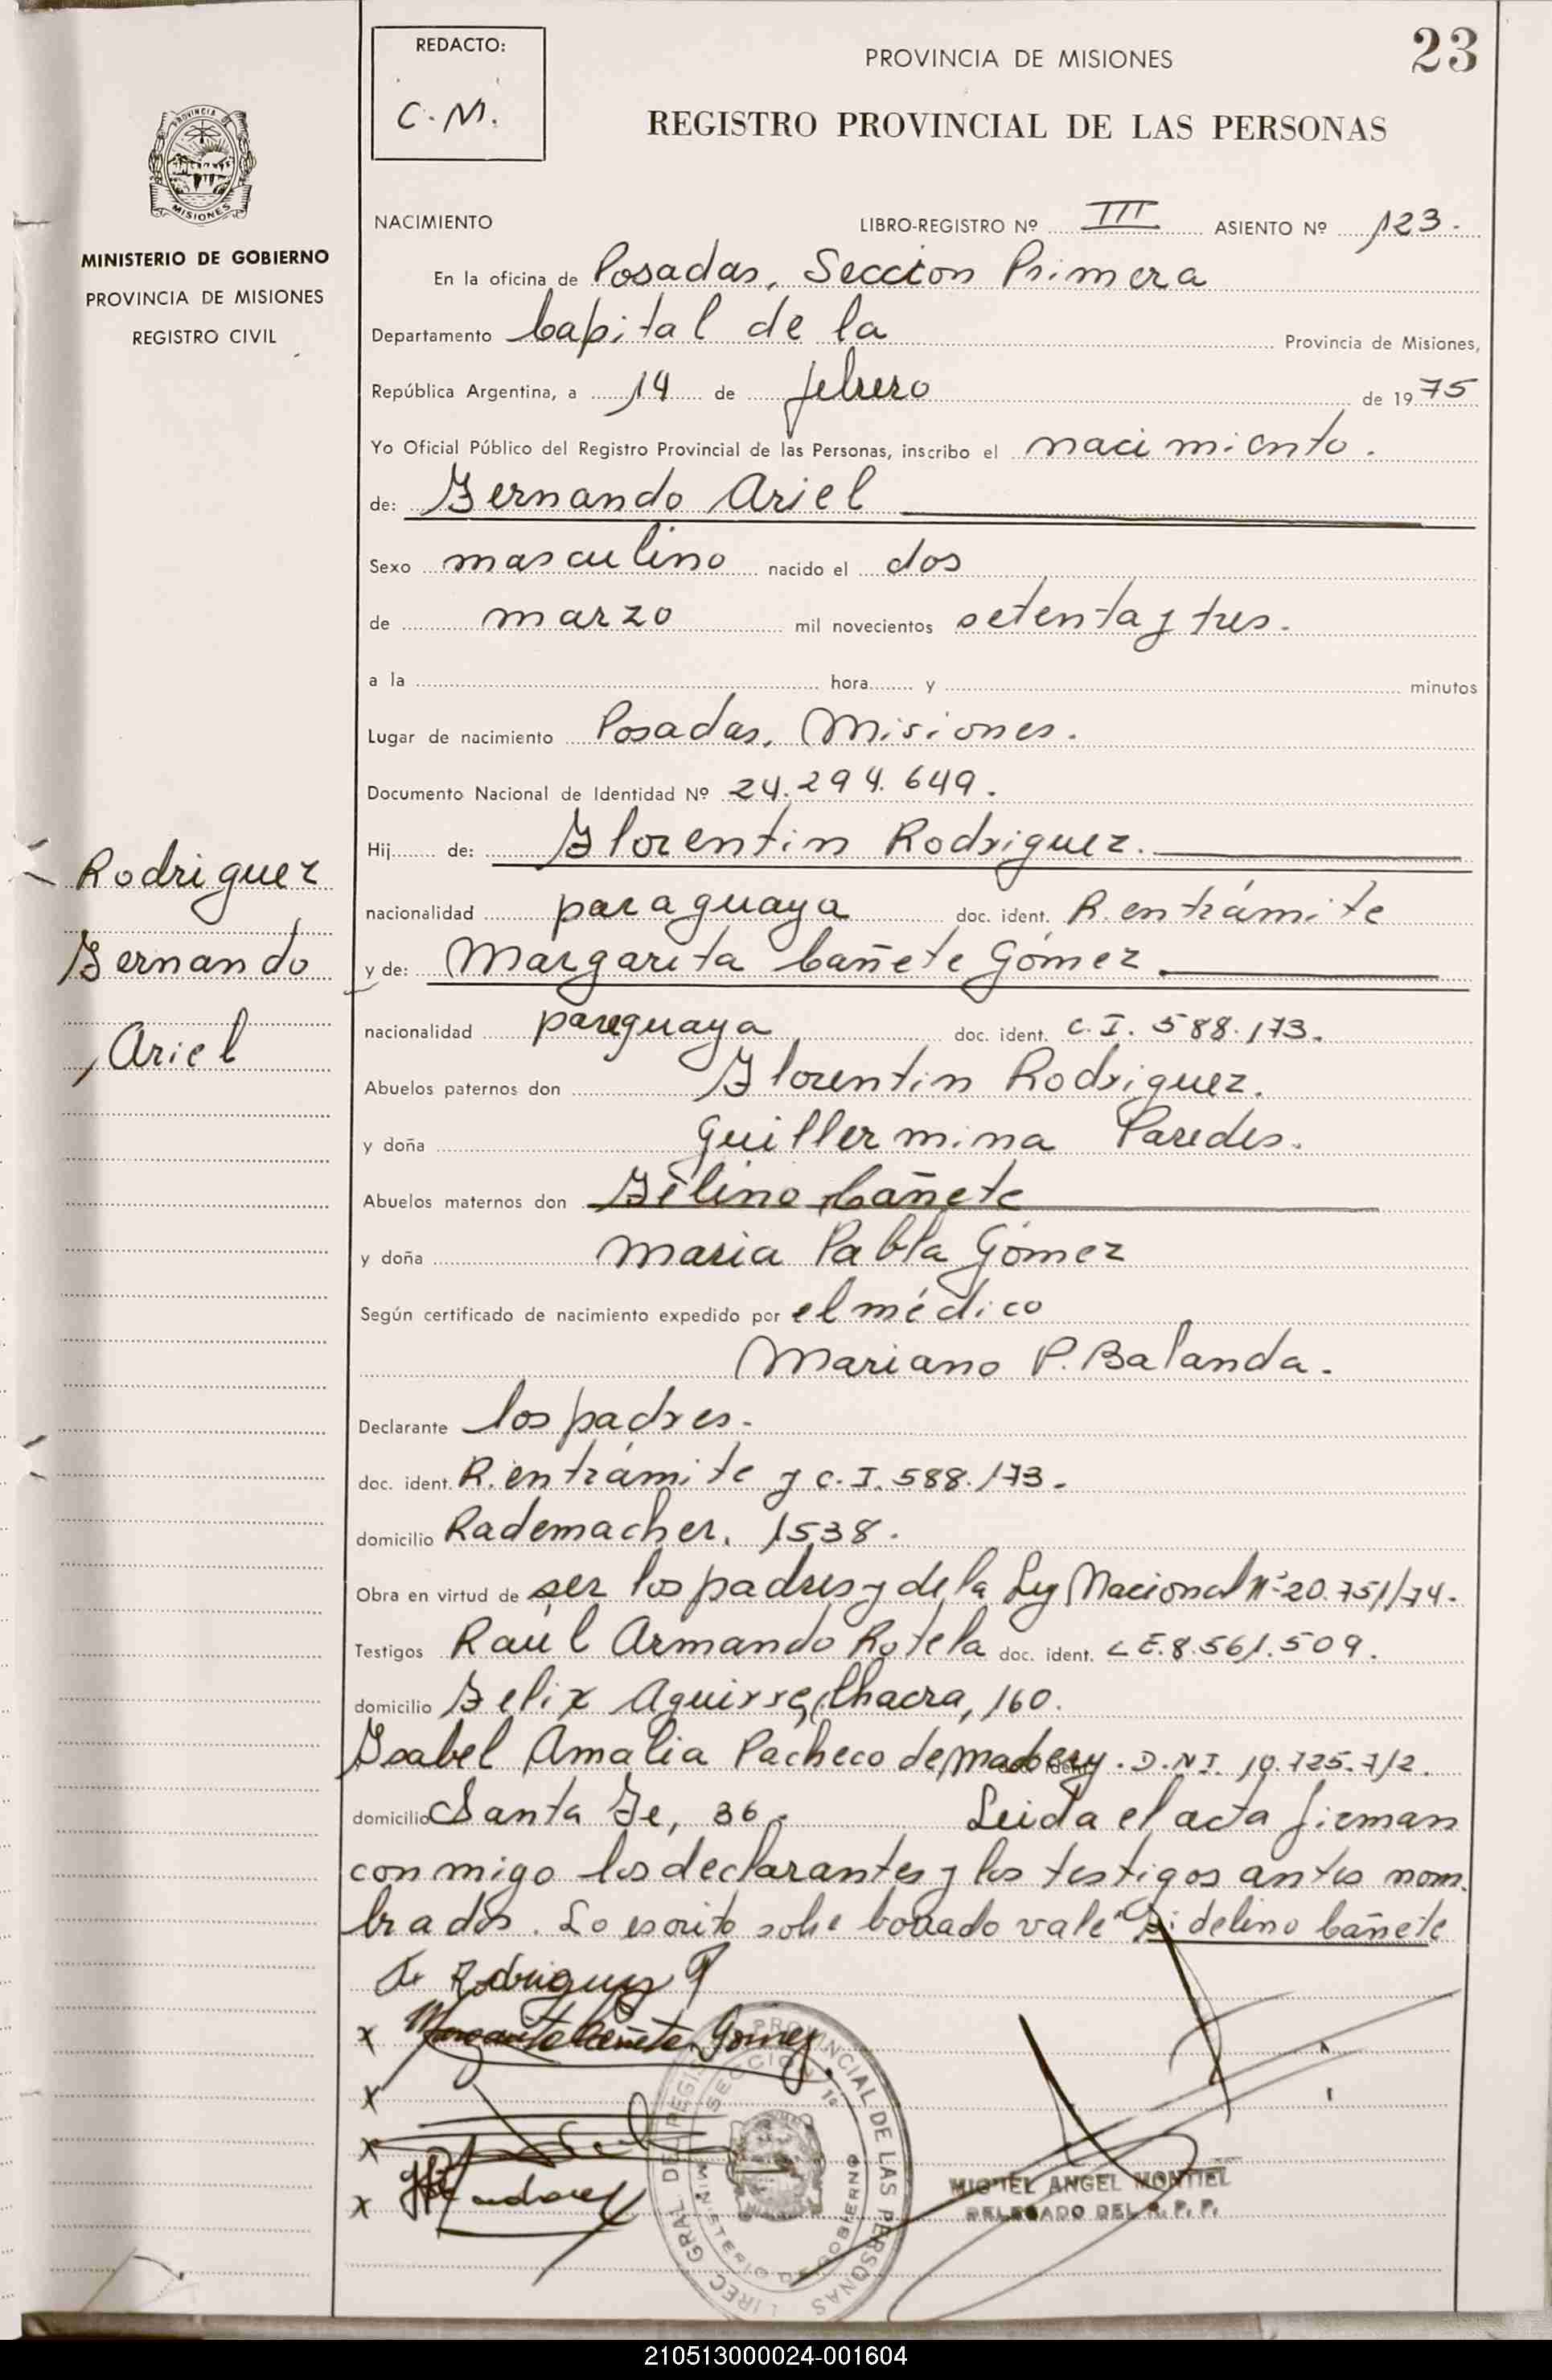 REDACTO:
C. M.
PROVINCIA DE MISIONES
23
REGISTRO PROVINCIAL DE LAS PERSONAS
PROVINCIA DE
MISIONES
MINISTERIO DE GOBIERNO
PROVINCIA DE MISIONES
REGISTRO CIVIL
NACIMIENTO LIBRO-REGISTRO Nº III ASIENTO Nº 123.
En la oficina de Posadas, Seccion Primera
Departamento Capital de la Provincia de Misiones,
República Argentina, a 14 de febrero de 1975
Yo Oficial Público del Registro Provincial de las Personas, inscribo el nacimiento.
de: Fernando Ariel
Sexo masculino nacido el dos
de marzo mil novecientos setenta y tres.
a la hora y minutos
Lugar de nacimiento Posadas, Misiones.
Documento Nacional de Identidad Nº 24.294.649.
Hij de: Florentin Rodriguez.
nacionalidad paraguaya doc. ident. R. en trámite
y de: Margarita Cañete Gómez.
nacionalidad paraguaya doc. ident. C.I. 588.173.
Abuelos paternos don Florentin Rodriguez.
y doña Guillermina Paredes.
Abuelos maternos don Cañete
y doña Maria Pabla Gómez
Según certificado de nacimiento expedido por el médico
Mariano P. Balanda.
Declarante los padres.
doc. ident. R. en trámite y C.I. 588.173.
domicilio Rademacher, 1538.
Obra en virtud de ser los padres y de la Ley Nacional Nº 20.751/74.
Testigos Raúl Armando Rotela doc. ident. L.E. 8.561.509.
domicilio Felix Aguirre, Chacra, 160.
Isabel Amalia Pacheco de . D.N.I. 10.725.712.
domicilio Santa Fe, 36. Leida el acta firman
conmigo los declarantes y los testigos antes nom.
brados. Lo escrito sobre borrado vale "Fidelino Cañete
Rodriguez
Fernando
Ariel
F. Rodriguez P
x Margarita Cañete Gomez.
x
x
x
DIREC. GRAL. DEL REGIS PROVINCIAL DE LAS PERSONAS
SECCION 1ª
MINISTERIO DE GOBIERNO
MIGUEL ANGEL MONTIEL
DELEGADO DEL R. P. P.
210513000024-001604